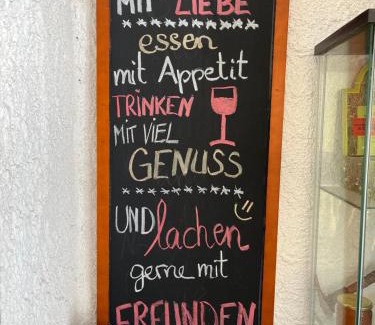 MIT LIEBE
essen
mit Appetit
TRINKEN
MIT VIEL
GENUSS
UND lachen
gerne mit
FREUNDEN